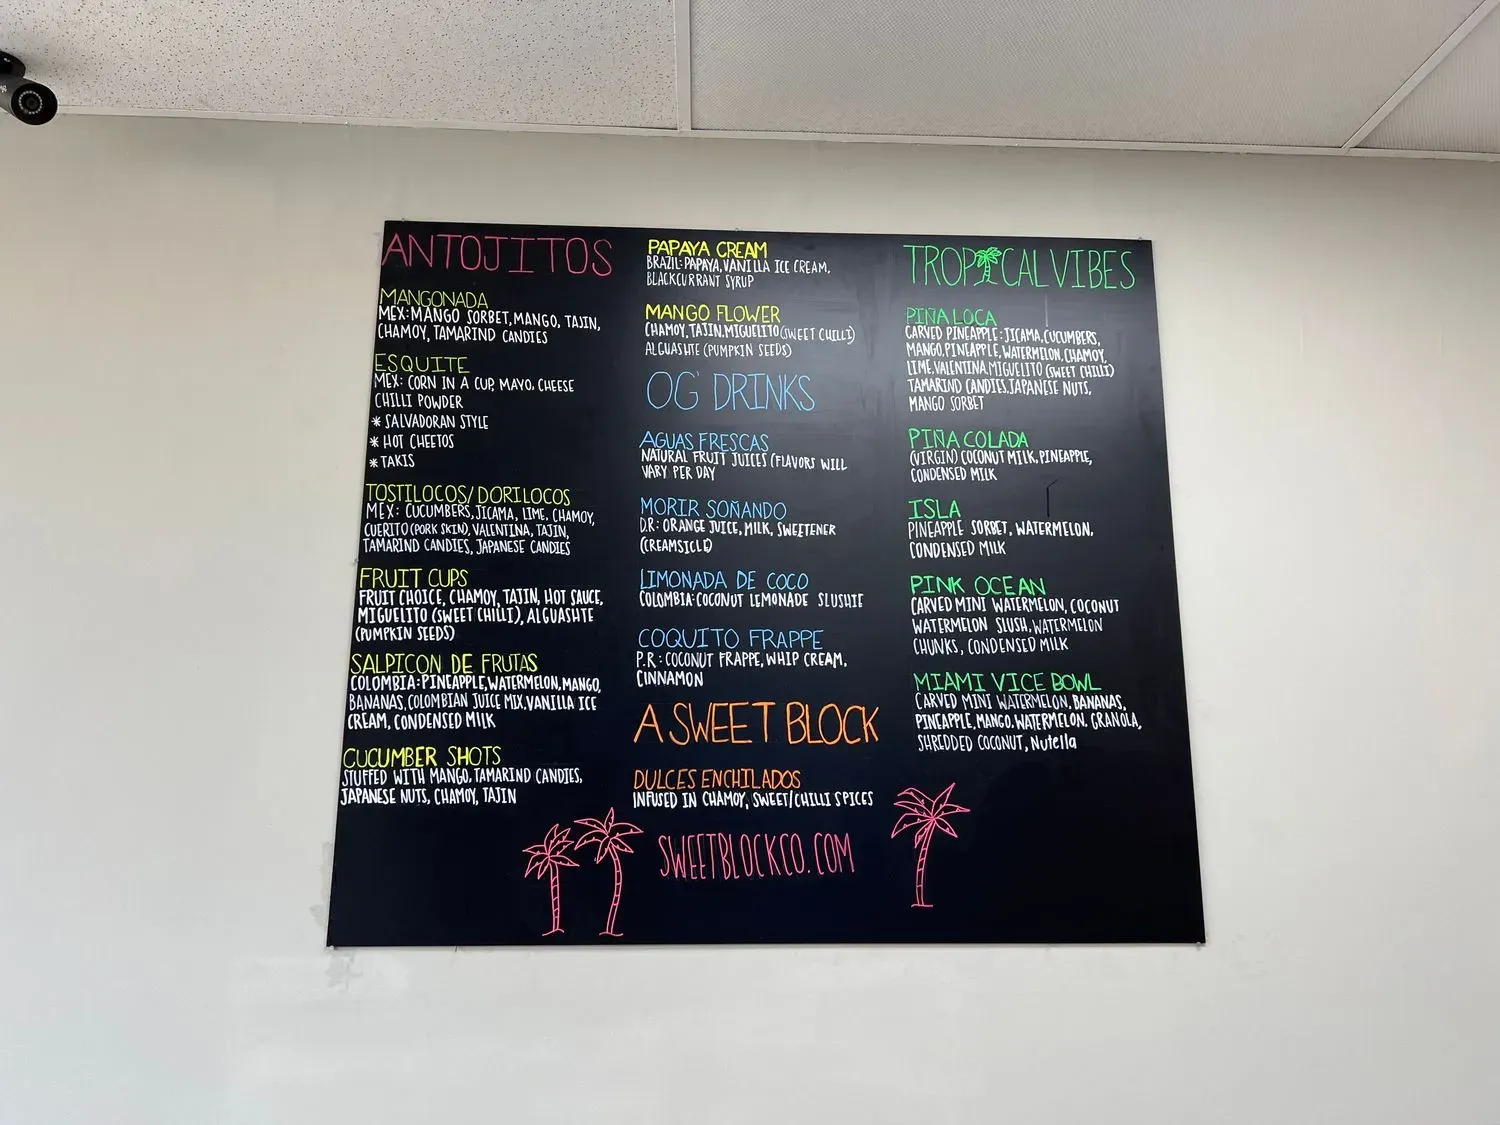 ANTOJITOS
MANGONADA
MEX: MANGO SORBET, MANGO, TAJIN,
CHAMOY, TAMARIND CANDIES
ESQUITE
MEX: CORN IN A CUP, MAYO, CHEESE
CHILLI POWDER
* SALVADORAN STYLE
* HOT CHEETOS
* TAKIS
TOSTILOCOS/DORILOCOS
MEX: CUCUMBERS, JICAMA, LIME, CHAMOY,
CUERITO (PORK SKIN), VALENTINA, TAJIN,
TAMARIND CANDIES, JAPANESE CANDIES
FRUIT CUPS
FRUIT CHOICE, CHAMOY, TAJIN, HOT SAUCE,
MIGUELITO (SWEET CHILLI), ALGUASHTE
(PUMPKIN SEEDS)
SALPICON DE FRUTAS
COLOMBIA: PINEAPPLE, WATERMELON, MANGO,
BANANAS, COLOMBIAN JUICE MIX, VANILLA ICE
CREAM, CONDENSED MILK
CUCUMBER SHOTS
STUFFED WITH MANGO, TAMARIND CANDIES,
JAPANESE NUTS, CHAMOY, TAJIN
PAPAYA CREAM
BRAZIL: PAPAYA, VANILLA ICE CREAM,
BLACKCURRANT SYRUP
MANGO FLOWER
CHAMOY, TAJIN, MIGUELITO (SWEET CHILLI)
ALGUASHTE (PUMPKIN SEEDS)
OG' DRINKS
AGUAS FRESCAS
NATURAL FRUIT JUICES (FLAVORS WILL
VARY PER DAY
MORIR SOÑANDO
D.R: ORANGE JUICE, MILK, SWEETENER
(CREAMSICLE)
LIMONADA DE COCO
COLOMBIA: COCONUT LEMONADE SLUSHIE
COQUITO FRAPPE
P.R: COCONUT FRAPPE, WHIP CREAM,
CINNAMON
A SWEET BLOCK
DULCES ENCHILADOS
INFUSED IN CHAMOY, SWEET/CHILLI SPICES
SWEETBLOCKCO.COM
TROPICAL VIBES
PIÑA LOCA
CARVED PINEAPPLE: JICAMA, CUCUMBERS,
MANGO, PINEAPPLE, WATERMELON, CHAMOY,
LIME, VALENTINA, MIGUELITO (SWEET CHILLI)
TAMARIND CANDIES, JAPANESE NUTS,
MANGO SORBET
PIÑA COLADA
(VIRGIN) COCONUT MILK, PINEAPPLE,
CONDENSED MILK
ISLA
PINEAPPLE SORBET, WATERMELON,
CONDENSED MILK
PINK OCEAN
CARVED MINI WATERMELON, COCONUT
WATERMELON SLUSH, WATERMELON
CHUNKS, CONDENSED MILK
MIAMI VICE BOWL
CARVED MINI WATERMELON, BANANAS,
PINEAPPLE, MANGO, WATERMELON, GRANOLA,
SHREDDED COCONUT, Nutella